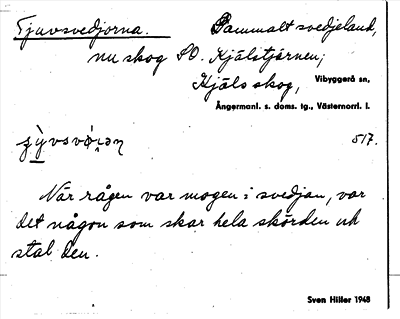 Tjuvsvedjorna. Gammalt svedjeland,
nu skog SO. Kjälstjärnen,
Kjäls skog, Vibyggerå sn,
Ångermanl. s. doms. tg., Västernorrl. l.
517.
När rågen var mogen i svedjan, var
det någon som skar hela skörden och
stal den.
Sven Hiller 1948